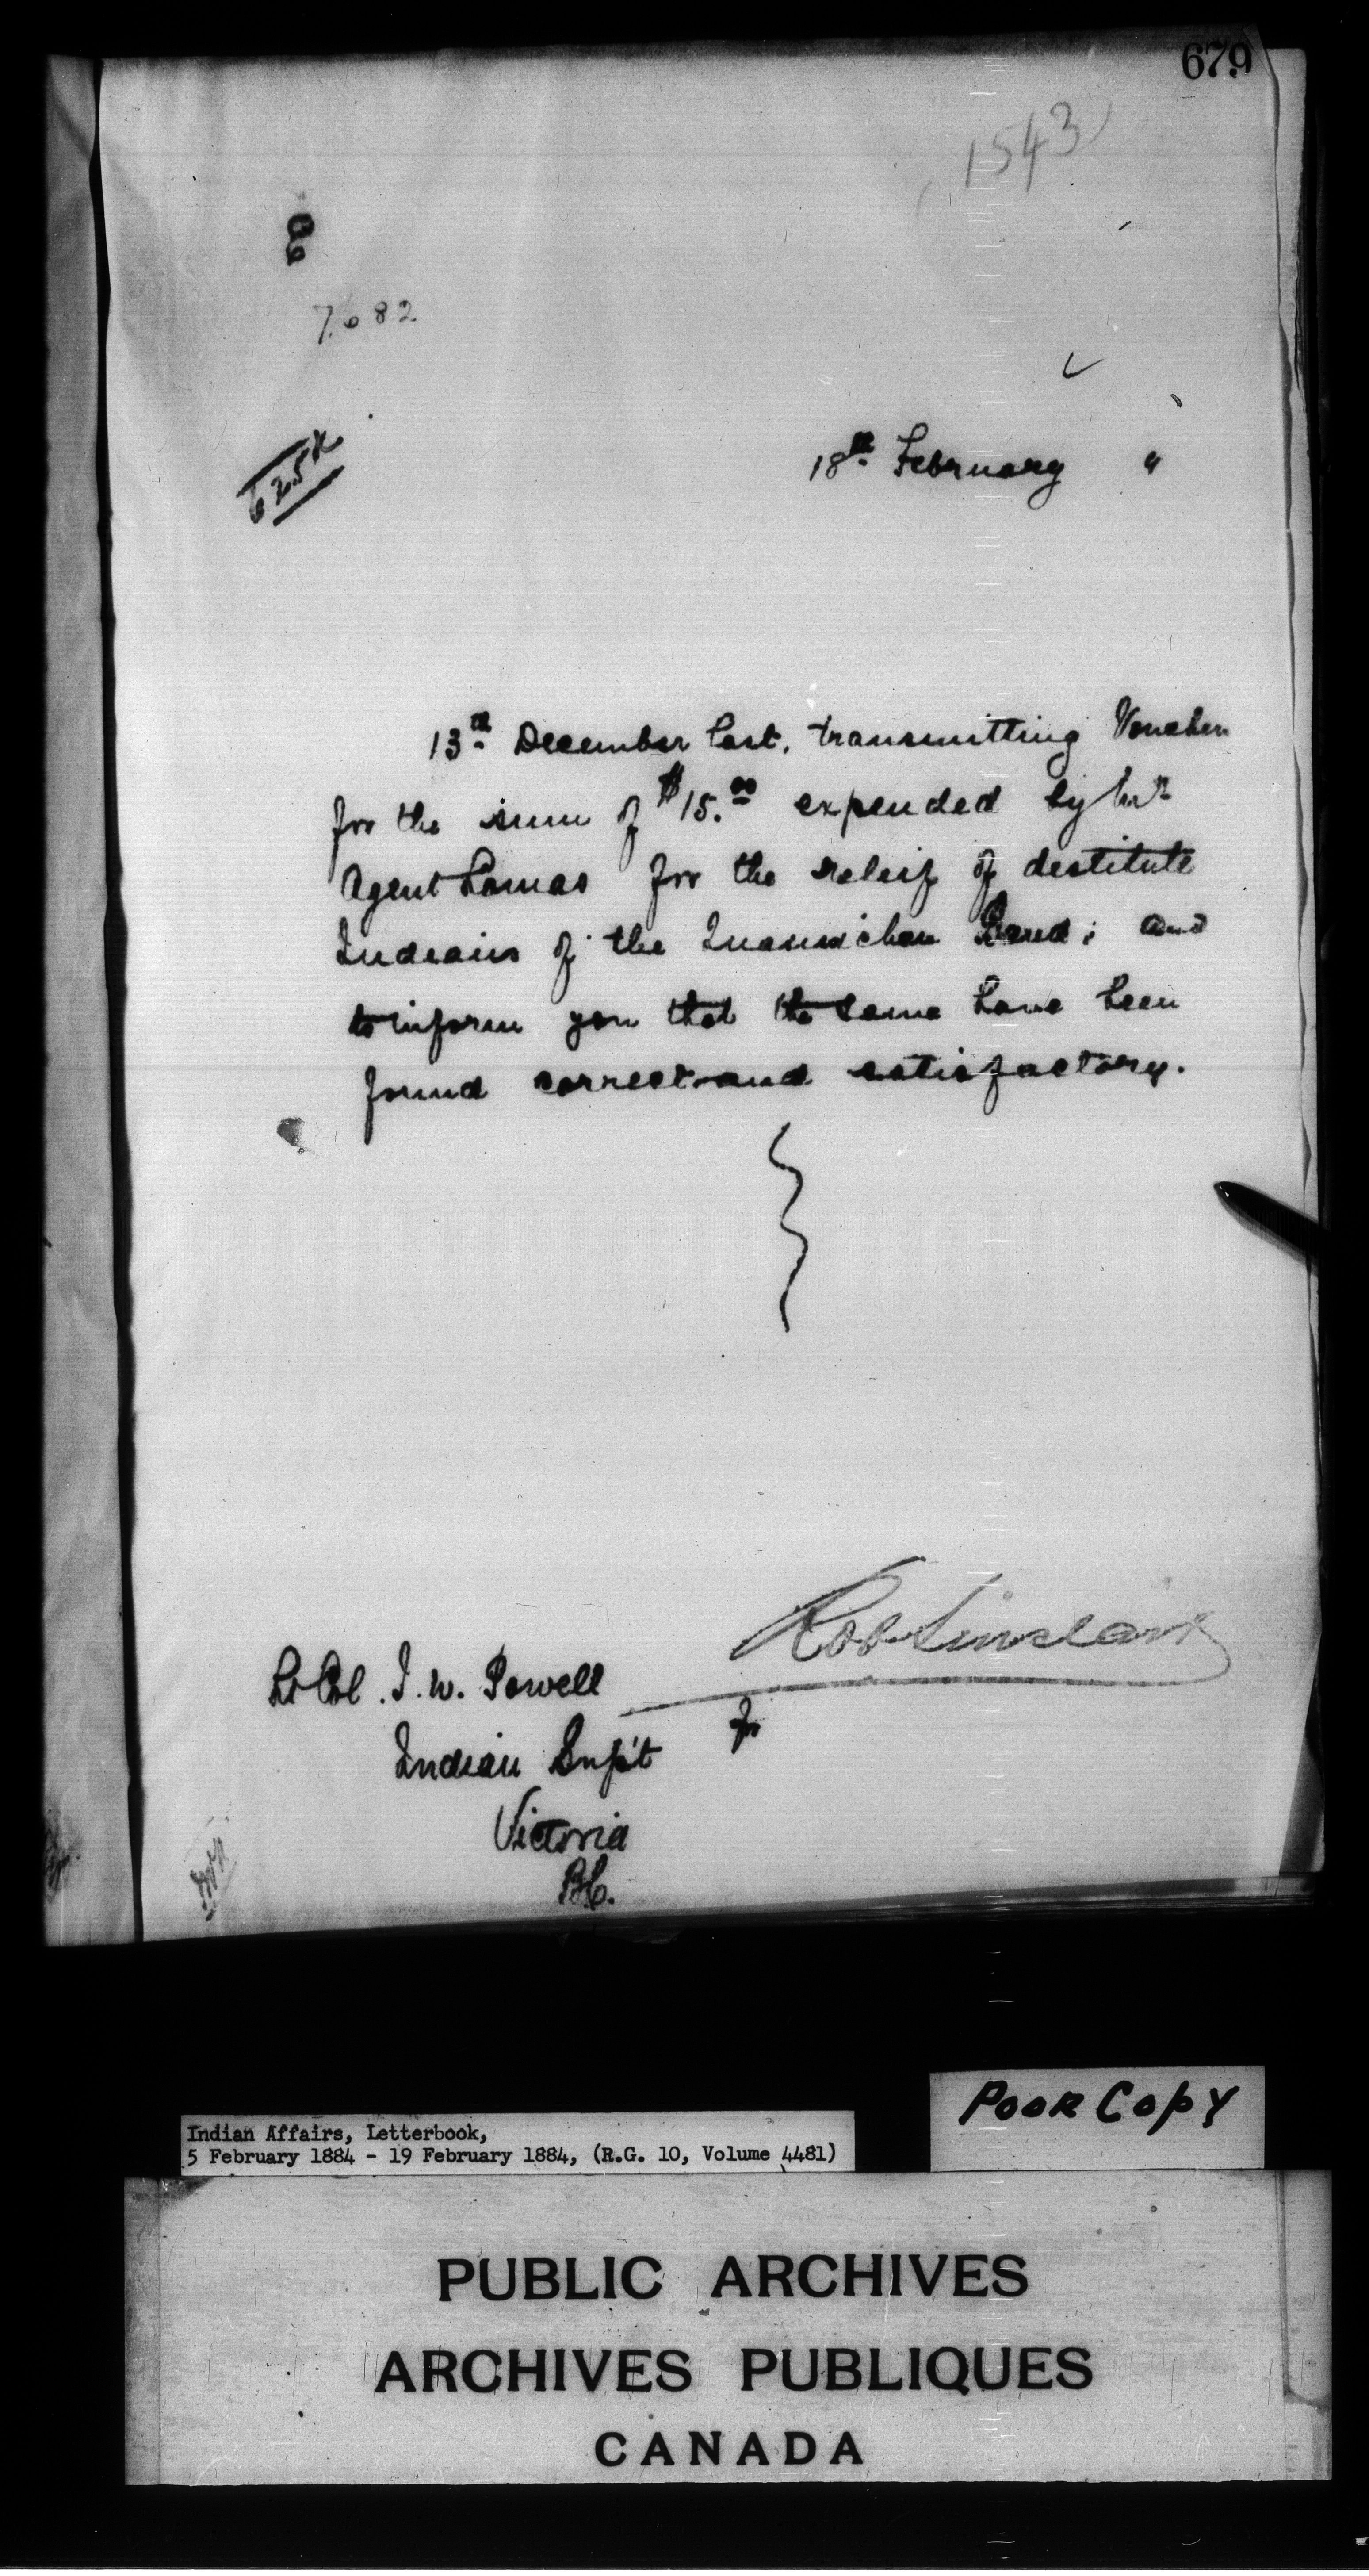 679
1543
7682
18th February "
13th December last, transmitting Vouchers
for the sum of $15.00 expended by Mr
Agent Lomas for the relief of destitute
Indians of the Quamichan Band; and
to inform you that the same have been
found correct and satisfactory.
Rob Sinclair
for
Lt Col. I. W. Powell
Indian Sup't
Victoria
B.C.
Poor Copy
Indian Affairs, Letterbook,
5 February 1884 - 19 February 1884, (R.G. 10, Volume 4481)
PUBLIC ARCHIVES
ARCHIVES PUBLIQUES
CANADA